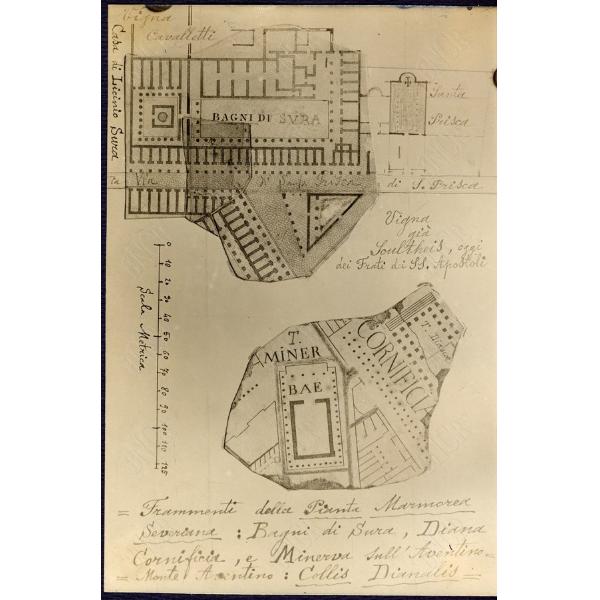 Vigna
Cavalletti
Casa di Licinio Sura
BAGNI DI SURA
Santa
Prisca
Via
di S. Prisca
Vigna
già
Soultheis, oggi
dei Frati di SS. Apostoli
0 10 20 30 40 50 60 70 80 90 100 110 125
Scala Metrica
T.
MINER
BAE
CORNIFICIA
T. Dianae
= Frammenti della Pianta Marmorea
Severiana : Bagni di Sura, Diana
Cornificia, e Minerva sull'Aventino=
= Monte Aventino : Collis Dianalis =